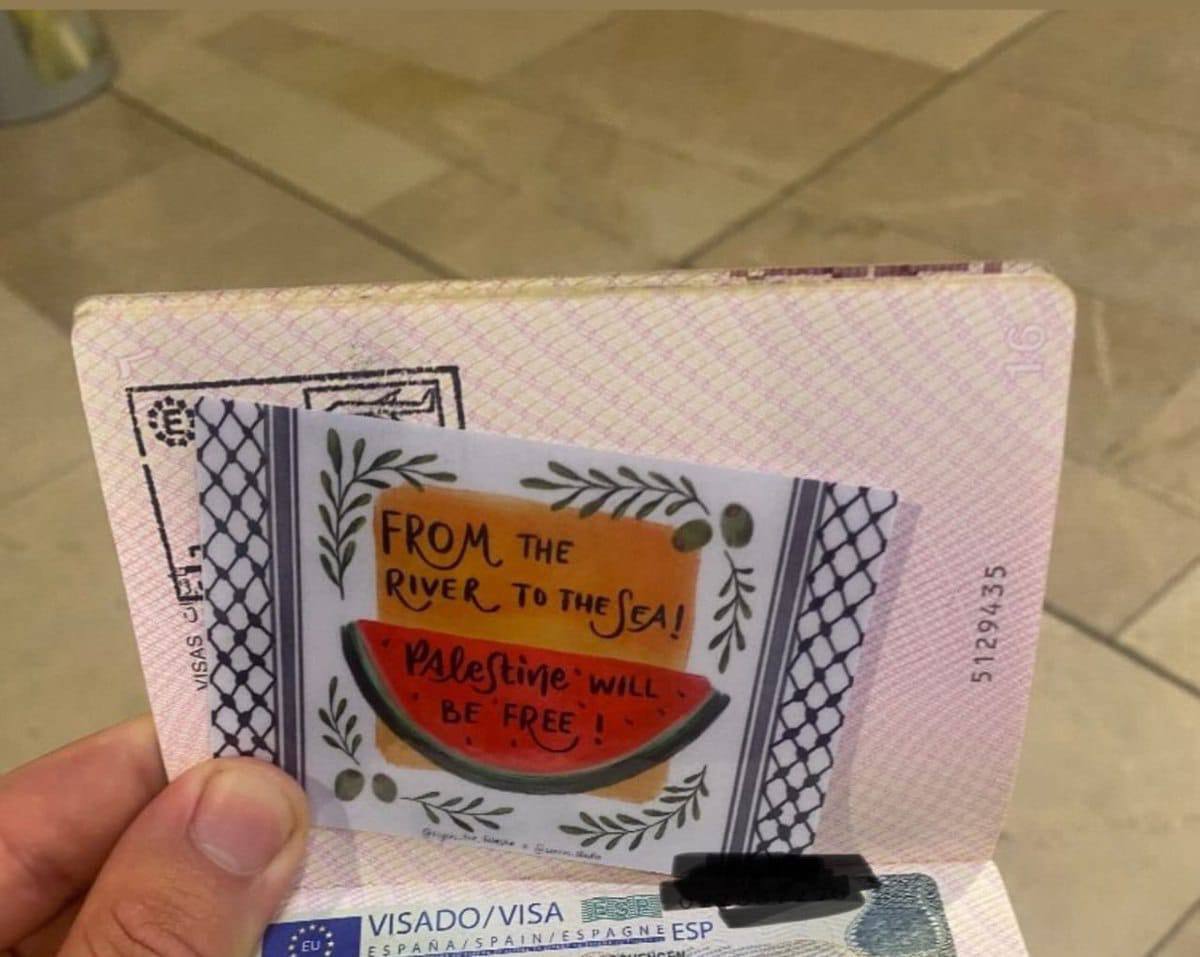 16
E
VISAS
FROM THE
RIVER TO THE SEA!
PALeStine WILL
BE FREE!
5129435
EU
VISADO/VISA ESP
ESPAÑA/SPAIN/ESPAGNE ESP